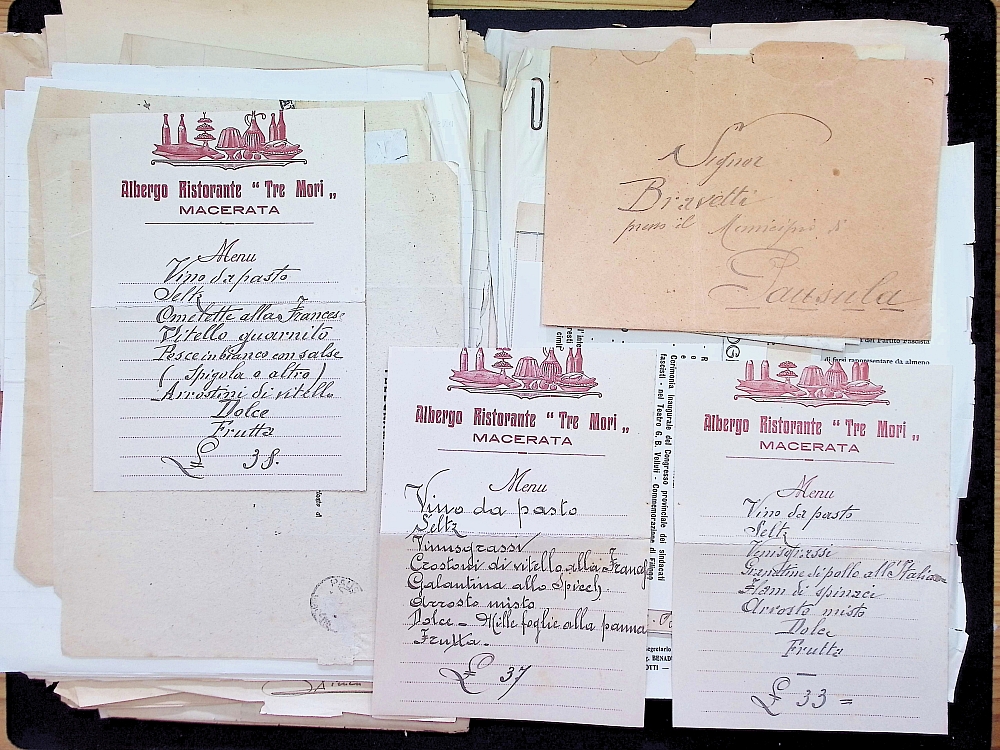 Albergo Ristorante " Tre Mori „
MACERATA
Menu
Vino da pasto
Seltz
Omelette alla Francese
Vitello guarnito
Pesce in bianco con salse
( Spigola o altro )
Arrostini di vitello
Dolce
Frutta
£ 38.
Signor
Bravetti
presso il Municipio di
Pausula
Albergo Ristorante " Tre Mori „
MACERATA
Menu
Vino da pasto
Seltz
Vinusgrassi
Crostoni di vitello alla Franc
Galantina allo Spiech
Arrosto misto
Dolce - Mille foglie alla panna
Frutta -
£ 37
Albergo Ristorante " Tre Mori „
MACERATA
Menu
Vino da pasto
Seltz
Venusgrassi
Granatine di pollo all'Italiana
Flam di spinaci
Arrosto misto
Dolce
Frutta
£ 33 =
del Partito Fascista
di farsi rappresentare da almeno
Cerimonia inaugurale del Congresso provinciale dei sindacati
fascisti - nel Teatro G. B. Velluti - Commemorazione di